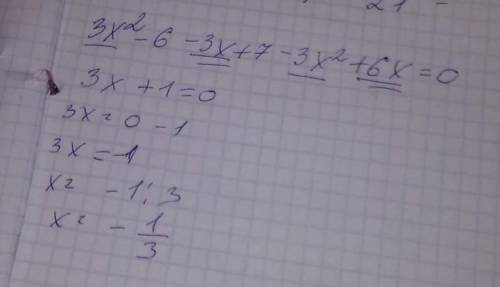 21 -
3x² - 6 - 3x + 7 - 3x² + 6x = 0
3x + 1 = 0
3x = 0 - 1
3x = -1
x = -1 : 3
x = - 1/3